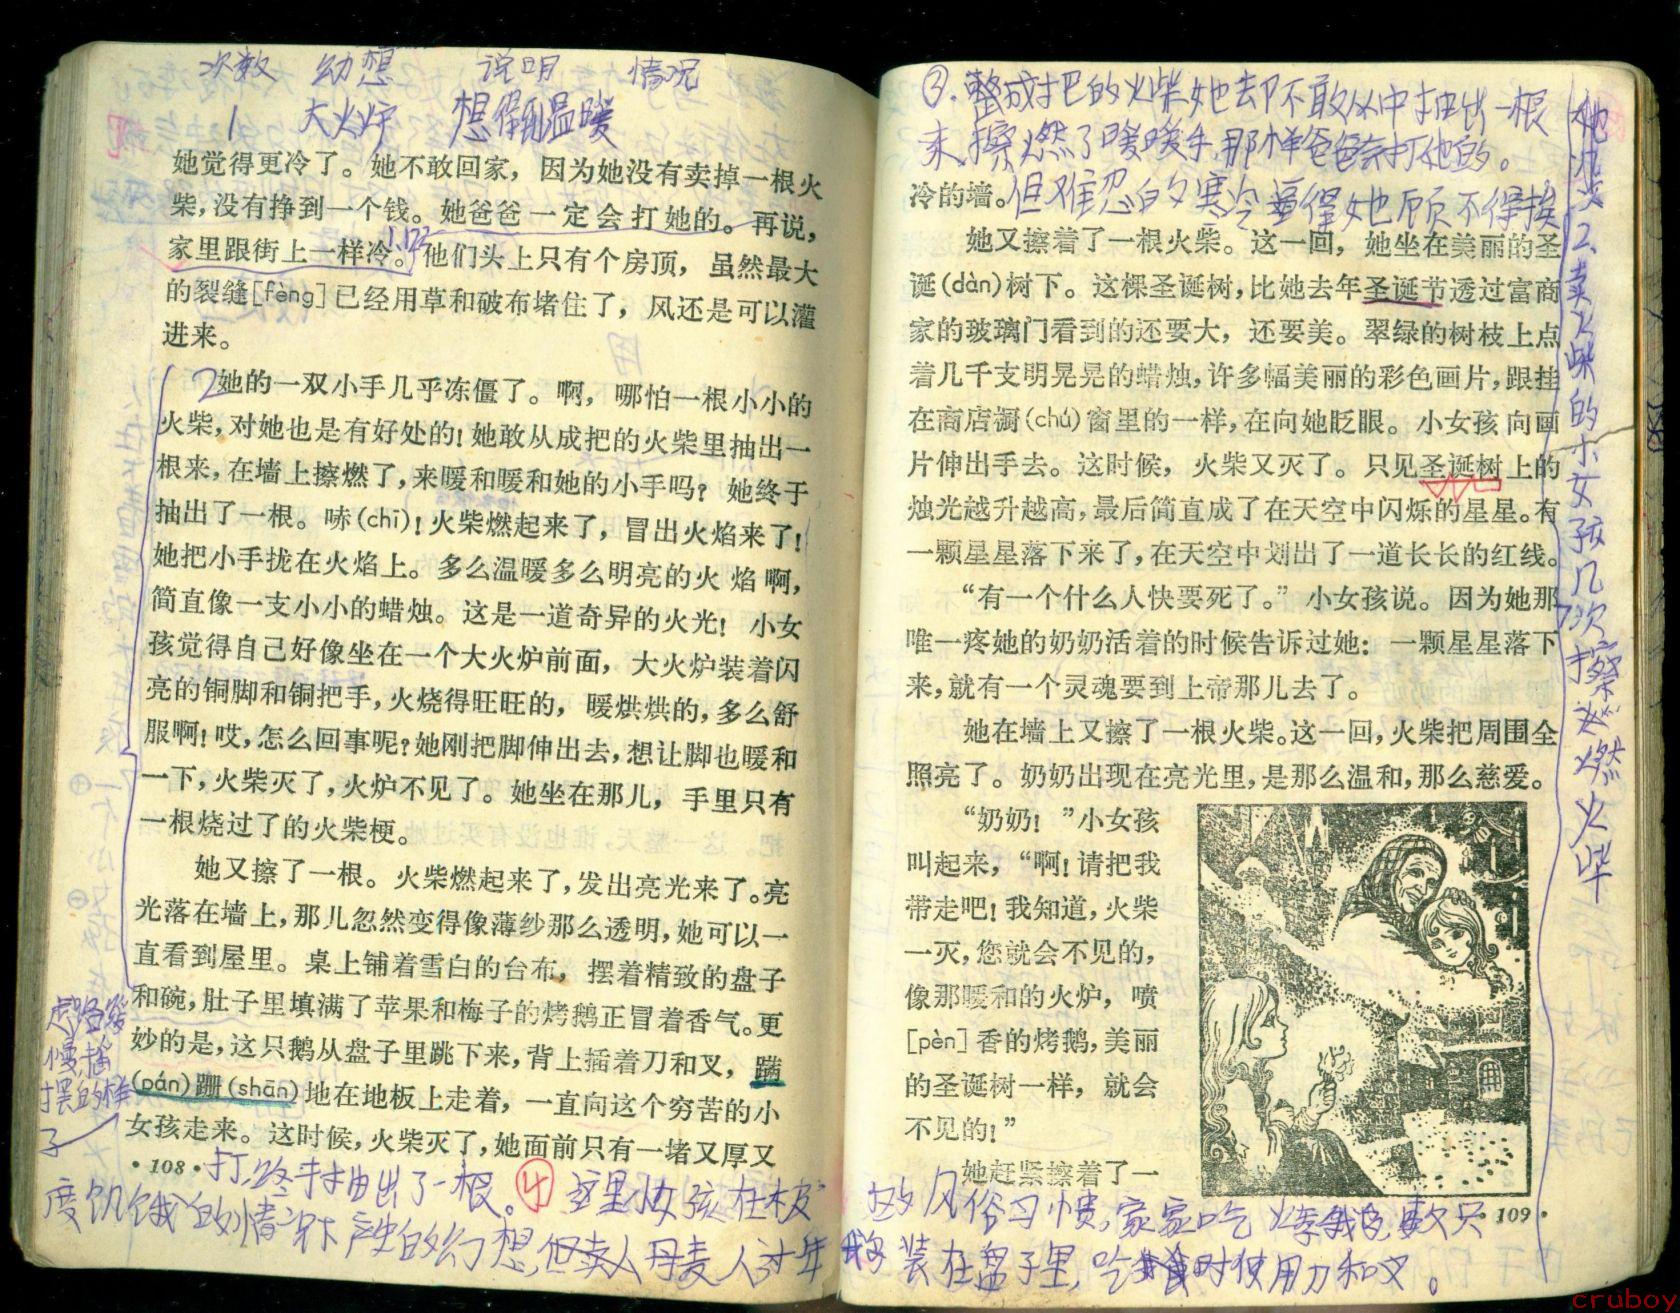 次数 幻想 说明 情况
1 大火炉 想得到温暖
她觉得更冷了。她不敢回家，因为她没有卖掉一根火
柴，没有挣到一个钱。她爸爸一定会打她的。再说，
家里跟街上一样冷。他们头上只有个房顶，虽然最大
的裂缝[fèng]已经用草和破布堵住了，风还是可以灌
进来。
2她的一双小手几乎冻僵了。啊，哪怕一根小小的
火柴，对她也是有好处的！她敢从成把的火柴里抽出一
根来，在墙上擦燃了，来暖和暖和她的小手吗？她终于
抽出了一根。哧(chī)！火柴燃起来了，冒出火焰来了！
她把小手拢在火焰上。多么温暖多么明亮的火焰啊，
简直像一支小小的蜡烛。这是一道奇异的火光！小女
孩觉得自己好像坐在一个大火炉前面，大火炉装着闪
亮的铜脚和铜把手，火烧得旺旺的，暖烘烘的，多么舒
服啊！哎，怎么回事呢？她刚把脚伸出去，想让脚也暖和
一下，火柴灭了，火炉不见了。她坐在那儿，手里只有
一根烧过了的火柴梗。
她又擦了一根。火柴燃起来了，发出亮光来了。亮
光落在墙上，那儿忽然变得像薄纱那么透明，她可以一
直看到屋里。桌上铺着雪白的台布，摆着精致的盘子
和碗，肚子里填满了苹果和梅子的烤鹅正冒着香气。更
妙的是，这只鹅从盘子里跳下来，背上插着刀和叉，蹒
(pán)跚(shān)地在地板上走着，一直向这个穷苦的小
女孩走来。这时候，火柴灭了，她面前只有一堵又厚又
走路缓
慢，摇
摆的样
子
·108·
打，终于抽出了一根。④ 这里小女孩在极
度饥饿的情况下产生的幻想，但卖人丹麦人过年
③.整成把的火柴她却不敢从中抽出一根
来，擦燃了暖暖手，那样爸爸会打她的。
但难忍的寒冷逼得她顾不得挨
冷的墙。
她又擦着了一根火柴。这一回，她坐在美丽的圣
诞(dàn)树下。这棵圣诞树，比她去年圣诞节透过富商
家的玻璃门看到的还要大，还要美。翠绿的树枝上点
着几千支明晃晃的蜡烛，许多幅美丽的彩色画片，跟挂
在商店橱(chú)窗里的一样，在向她眨眼。小女孩向画
片伸出手去。这时候，火柴又灭了。只见圣诞树上的
烛光越升越高，最后简直成了在天空中闪烁的星星。有
一颗星星落下来了，在天空中划出了一道长长的红线。
“有一个什么人快要死了。”小女孩说。因为她那
唯一疼她的奶奶活着的时候告诉过她：一颗星星落下
来，就有一个灵魂要到上帝那儿去了。
她在墙上又擦了一根火柴。这一回，火柴把周围全
照亮了。奶奶出现在亮光里，是那么温和，那么慈爱。
“奶奶！”小女孩
叫起来，“啊！请把我
带走吧！我知道，火柴
一灭，您就会不见的，
像那暖和的火炉，喷
[pèn]香的烤鹅，美丽
的圣诞树一样，就会
不见的！”
她赶紧擦着了一
·109·
的风俗习惯，家家吃烤鹅，
装在盘子里，吃时使用刀和叉。
2、卖火柴的小女孩几次擦燃火柴
cruboy